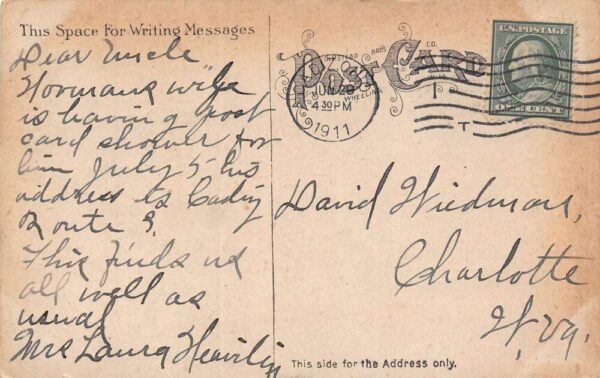 This Space For Writing Messages
Dear Uncle
Normans wife
is having a post
card shower for
him July 5 his
address is Cadiz
Route 9.
This finds us
all well as
usual
Mrs Laura Heavilin
Post Card
JUN 29
4 30 PM
1911
U.S. POSTAGE
ONE CENT
David Wiedman,
Charlotte
W, Va.
This side for the Address only.